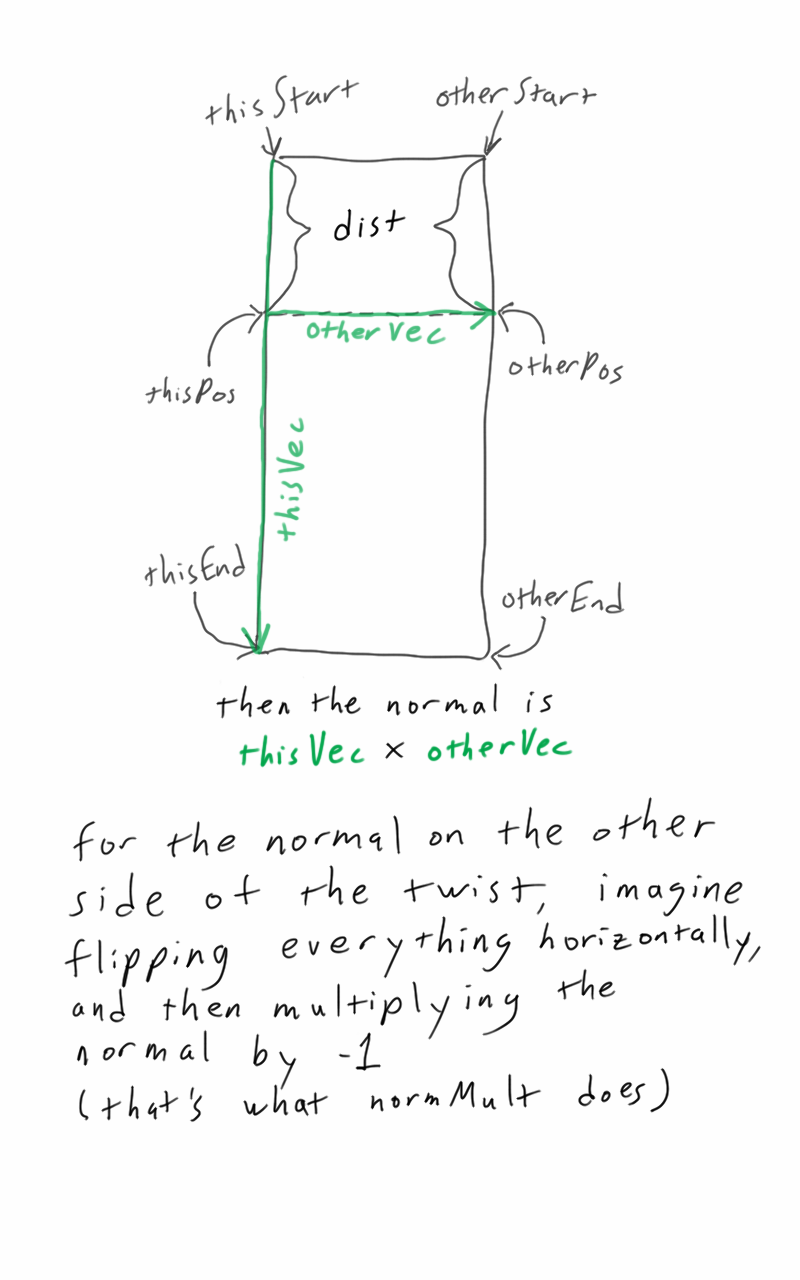 thisStart
otherStart
dist
otherVec
thisPos
otherPos
thisVec
thisEnd
otherEnd
then the normal is
thisVec × otherVec
for the normal on the other
side of the twist, imagine
flipping everything horizontally,
and then multiplying the
normal by -1
(that's what normMult does)